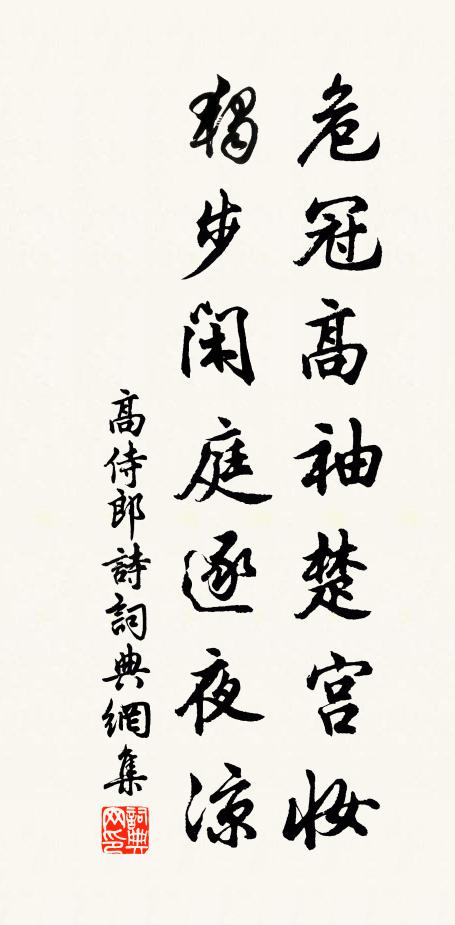 危冠高袖楚宫妆
獨步閑庭逐夜凉
高侍郎詩詞典網集
詞典网印